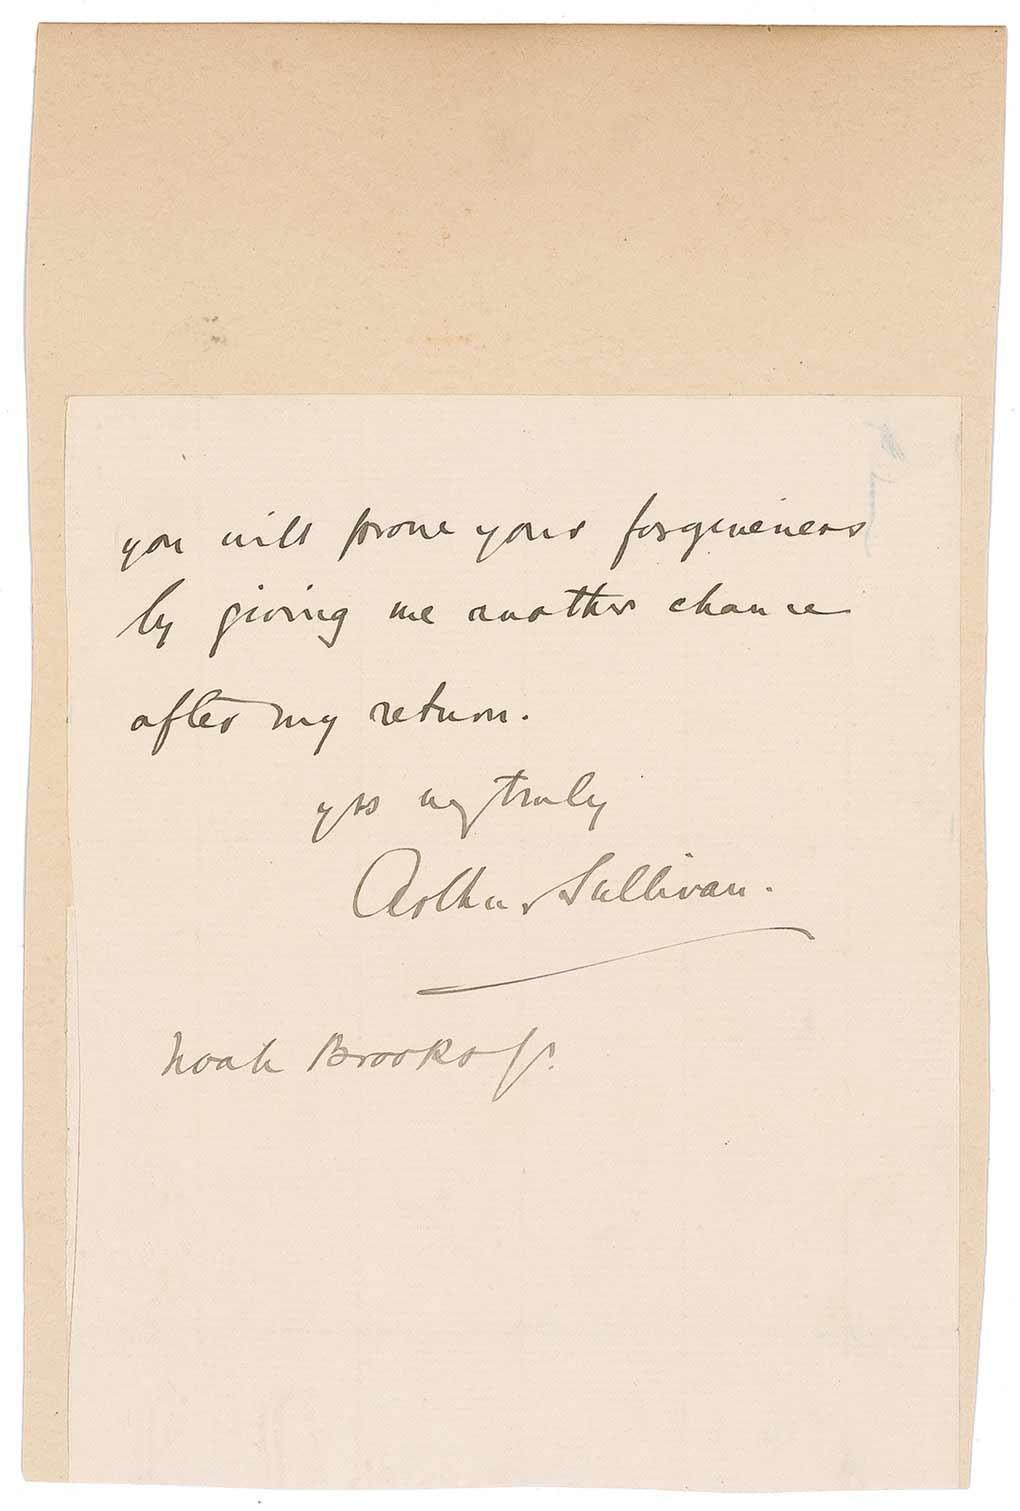 you will prove your forgiveness
by giving me another chance
after my return.
yrs very truly
Arthur Sullivan.
Noah Brooks Jr.